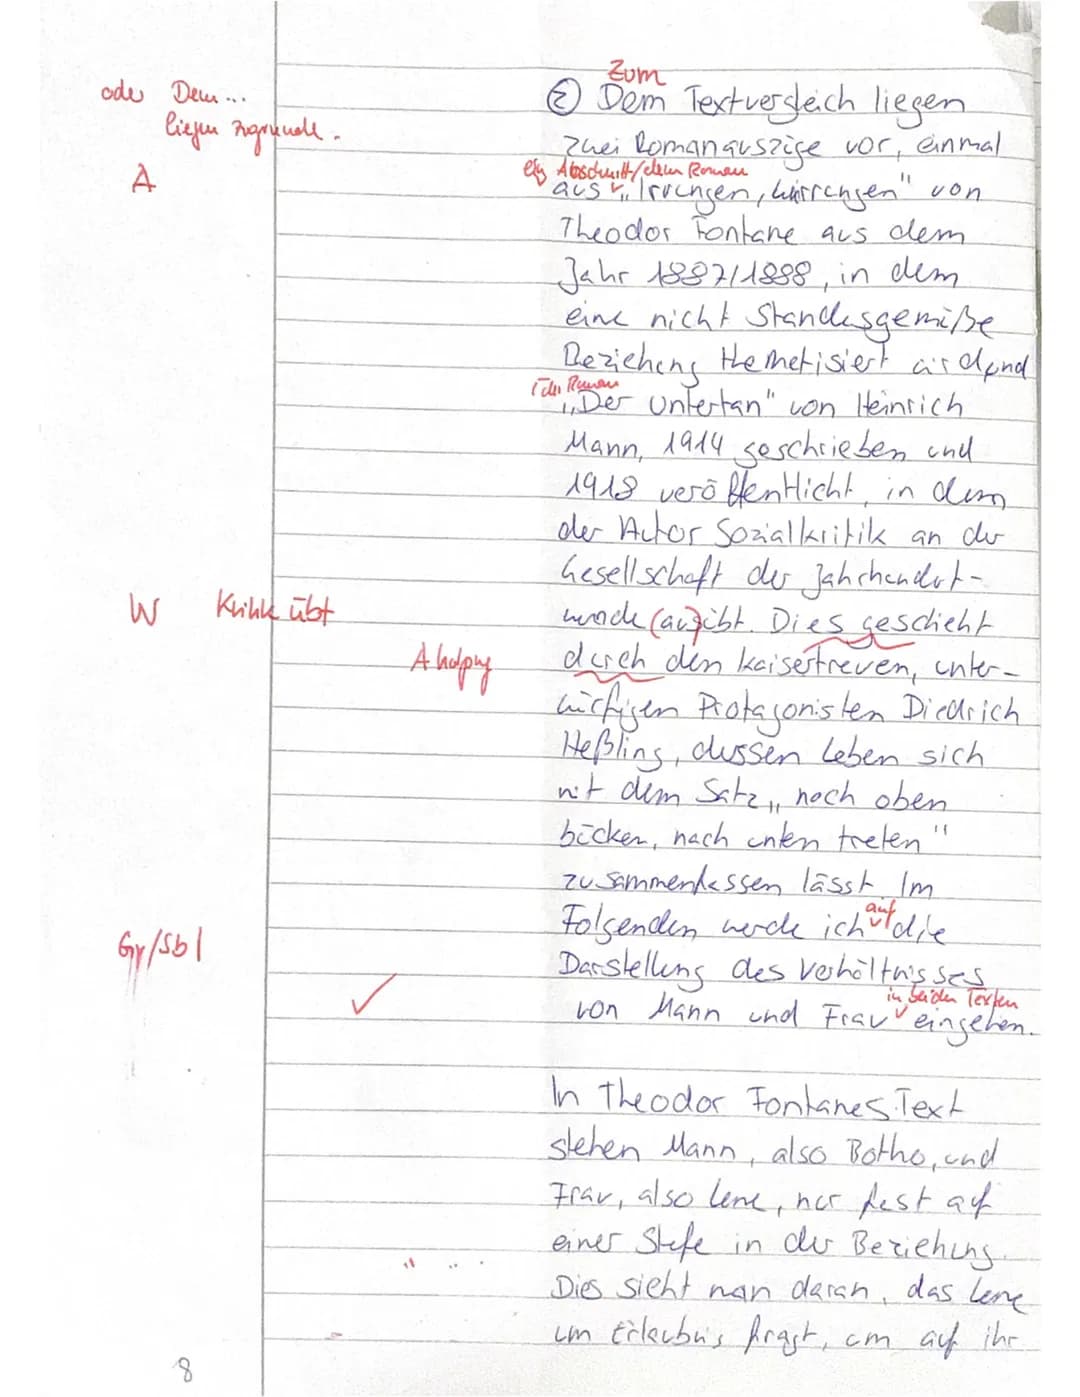 Zum
oder Dem...
② Dem Textvergleich liegen
liegen zugrunde.
zwei Romanauszüge vor, einmal
A
Abschnitt/dem Roman
aus „Irrungen, Wirrungen" von
Theodor Fontane aus dem
Jahr 1887/1888, in dem
eine nicht Standesgemäße
Beziehung thematisiert wird und
der Roman
„Der Untertan" von Heinrich
Mann, 1914 geschrieben und
1918 veröffentlicht, in dem
der Autor Sozialkritik an der
Gesellschaft der Jahrhundert-
W Kritik übt
wende (aus)übt. Dies geschieht
A holprig
durch den kaisertreuen, unter-
würfigen Protagonisten Diedrich
Heßling, dessen Leben sich
mit dem Satz „nach oben
bücken, nach unten treten"
zusammenfassen lässt. Im
auf
Folgenden werde ich die
Gr/Sb
Darstellung des Verhältnisses
in beiden Texten
von Mann und Frau eingehen.
In Theodor Fontanes Text
stehen Mann, also Botho, und
Frau, also Lene, nur fast auf
einer Stufe in der Beziehung.
Dies sieht man daran, das Lene
um Erlaubnis fragt, um auf ihr
8